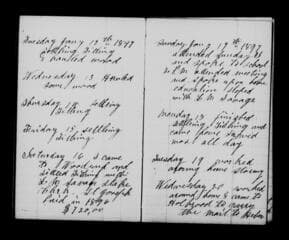 Tuesday Jany 12th 1897
settling Tithing
& hauled wood
Wednesday 13 Hauled
some wood
Thursday 14 settling
Tithing
Friday 15 settling
Tithing
Saturday 16 I came
to Woodruff and
settled Tithing with
L. M. Savage Stake
Clerk
Paid in 1896
$720.00
Sunday Jany 17th 1897
attended Sunday School
and spoke, to school
2 P.M. attended meeting
and spoke upon home
education slept
with L. M. Savage
Monday 18 finished
settling Tithing and
came home
most all day
Tuesday 19 worked
around home stormy
Wednesday 20 worked
around home & came to
Holbrook to carry
the mail to Heber